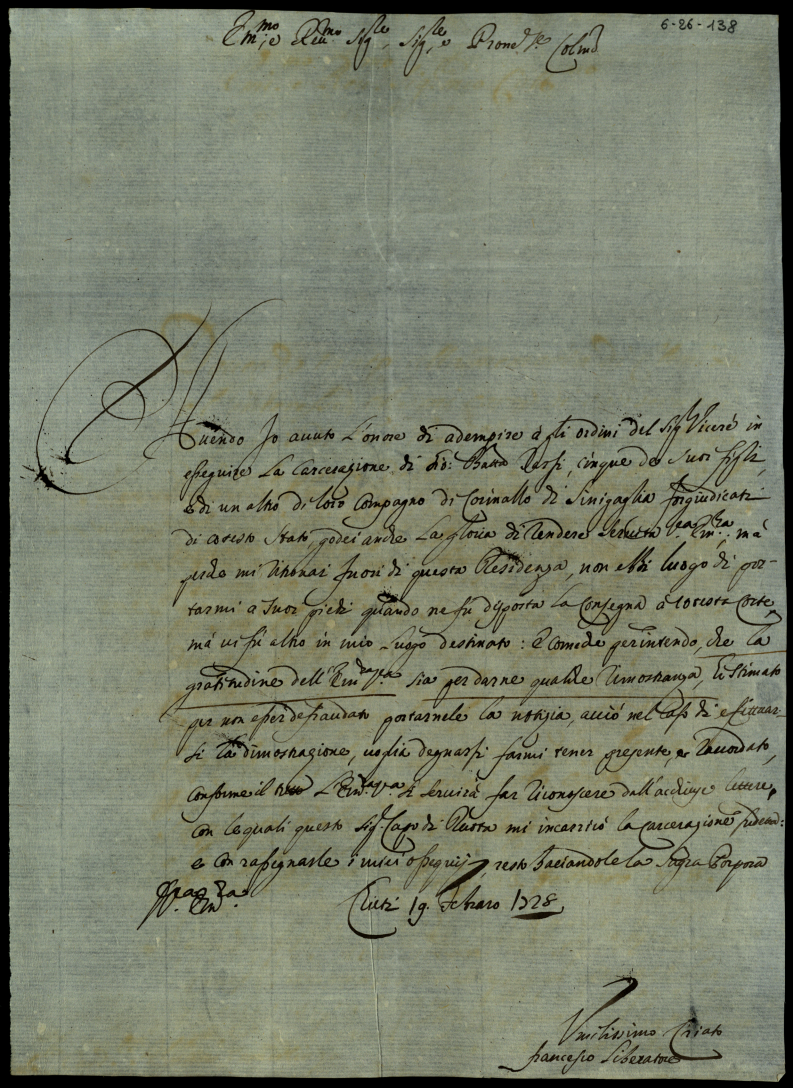 6-26-138
Em.mo e Rev.mo Sig.re, Sig.re, e Prone Colmo
Avendo Io avuto L'onore di adempire à gli ordini del Sig.r Vicerè in
esseguire La Carcerazione di Gio: Batta Rossi, cinque de Suoi figli,
e di un altro di loro Compagno di Corinallo di Sinigaglia forgiudicati
di cotesto Stato, godei anche La gloria di rendere servita V.ra Em.za mà
perche mi ritrovai fuori di questa Residenza, non ebbi luogo di por-
tarmi a Suoi piedi quando ne fu disposta la Consegna à cotesta Corte,
mà vi fù altro in mio Luogo destinato: E comeche per intendo, che la
gratitudine dell'Em.za V.ra sia per darne qualche rimostranza, hò Stimato
per non esser defraudato portarnele la notizia, acciò nel caso di effettuar-
si la dimostrazione, voglia degnarsi farmi tener presente, e raccordato,
conforme il L'Em.za V.ra si servirà far riconoscere dall'accluse lettere,
con le quali questo Sig.r Capo di Ruota mi incaricò la carcerazione sudetta:
e con rassegnarle i miei ossequij, resto baciandole la Sagra Porpora
Di V.ra Em.za
Chieti 19. Febraro 1728
Umilissimo Criato
Francesco Liberatore